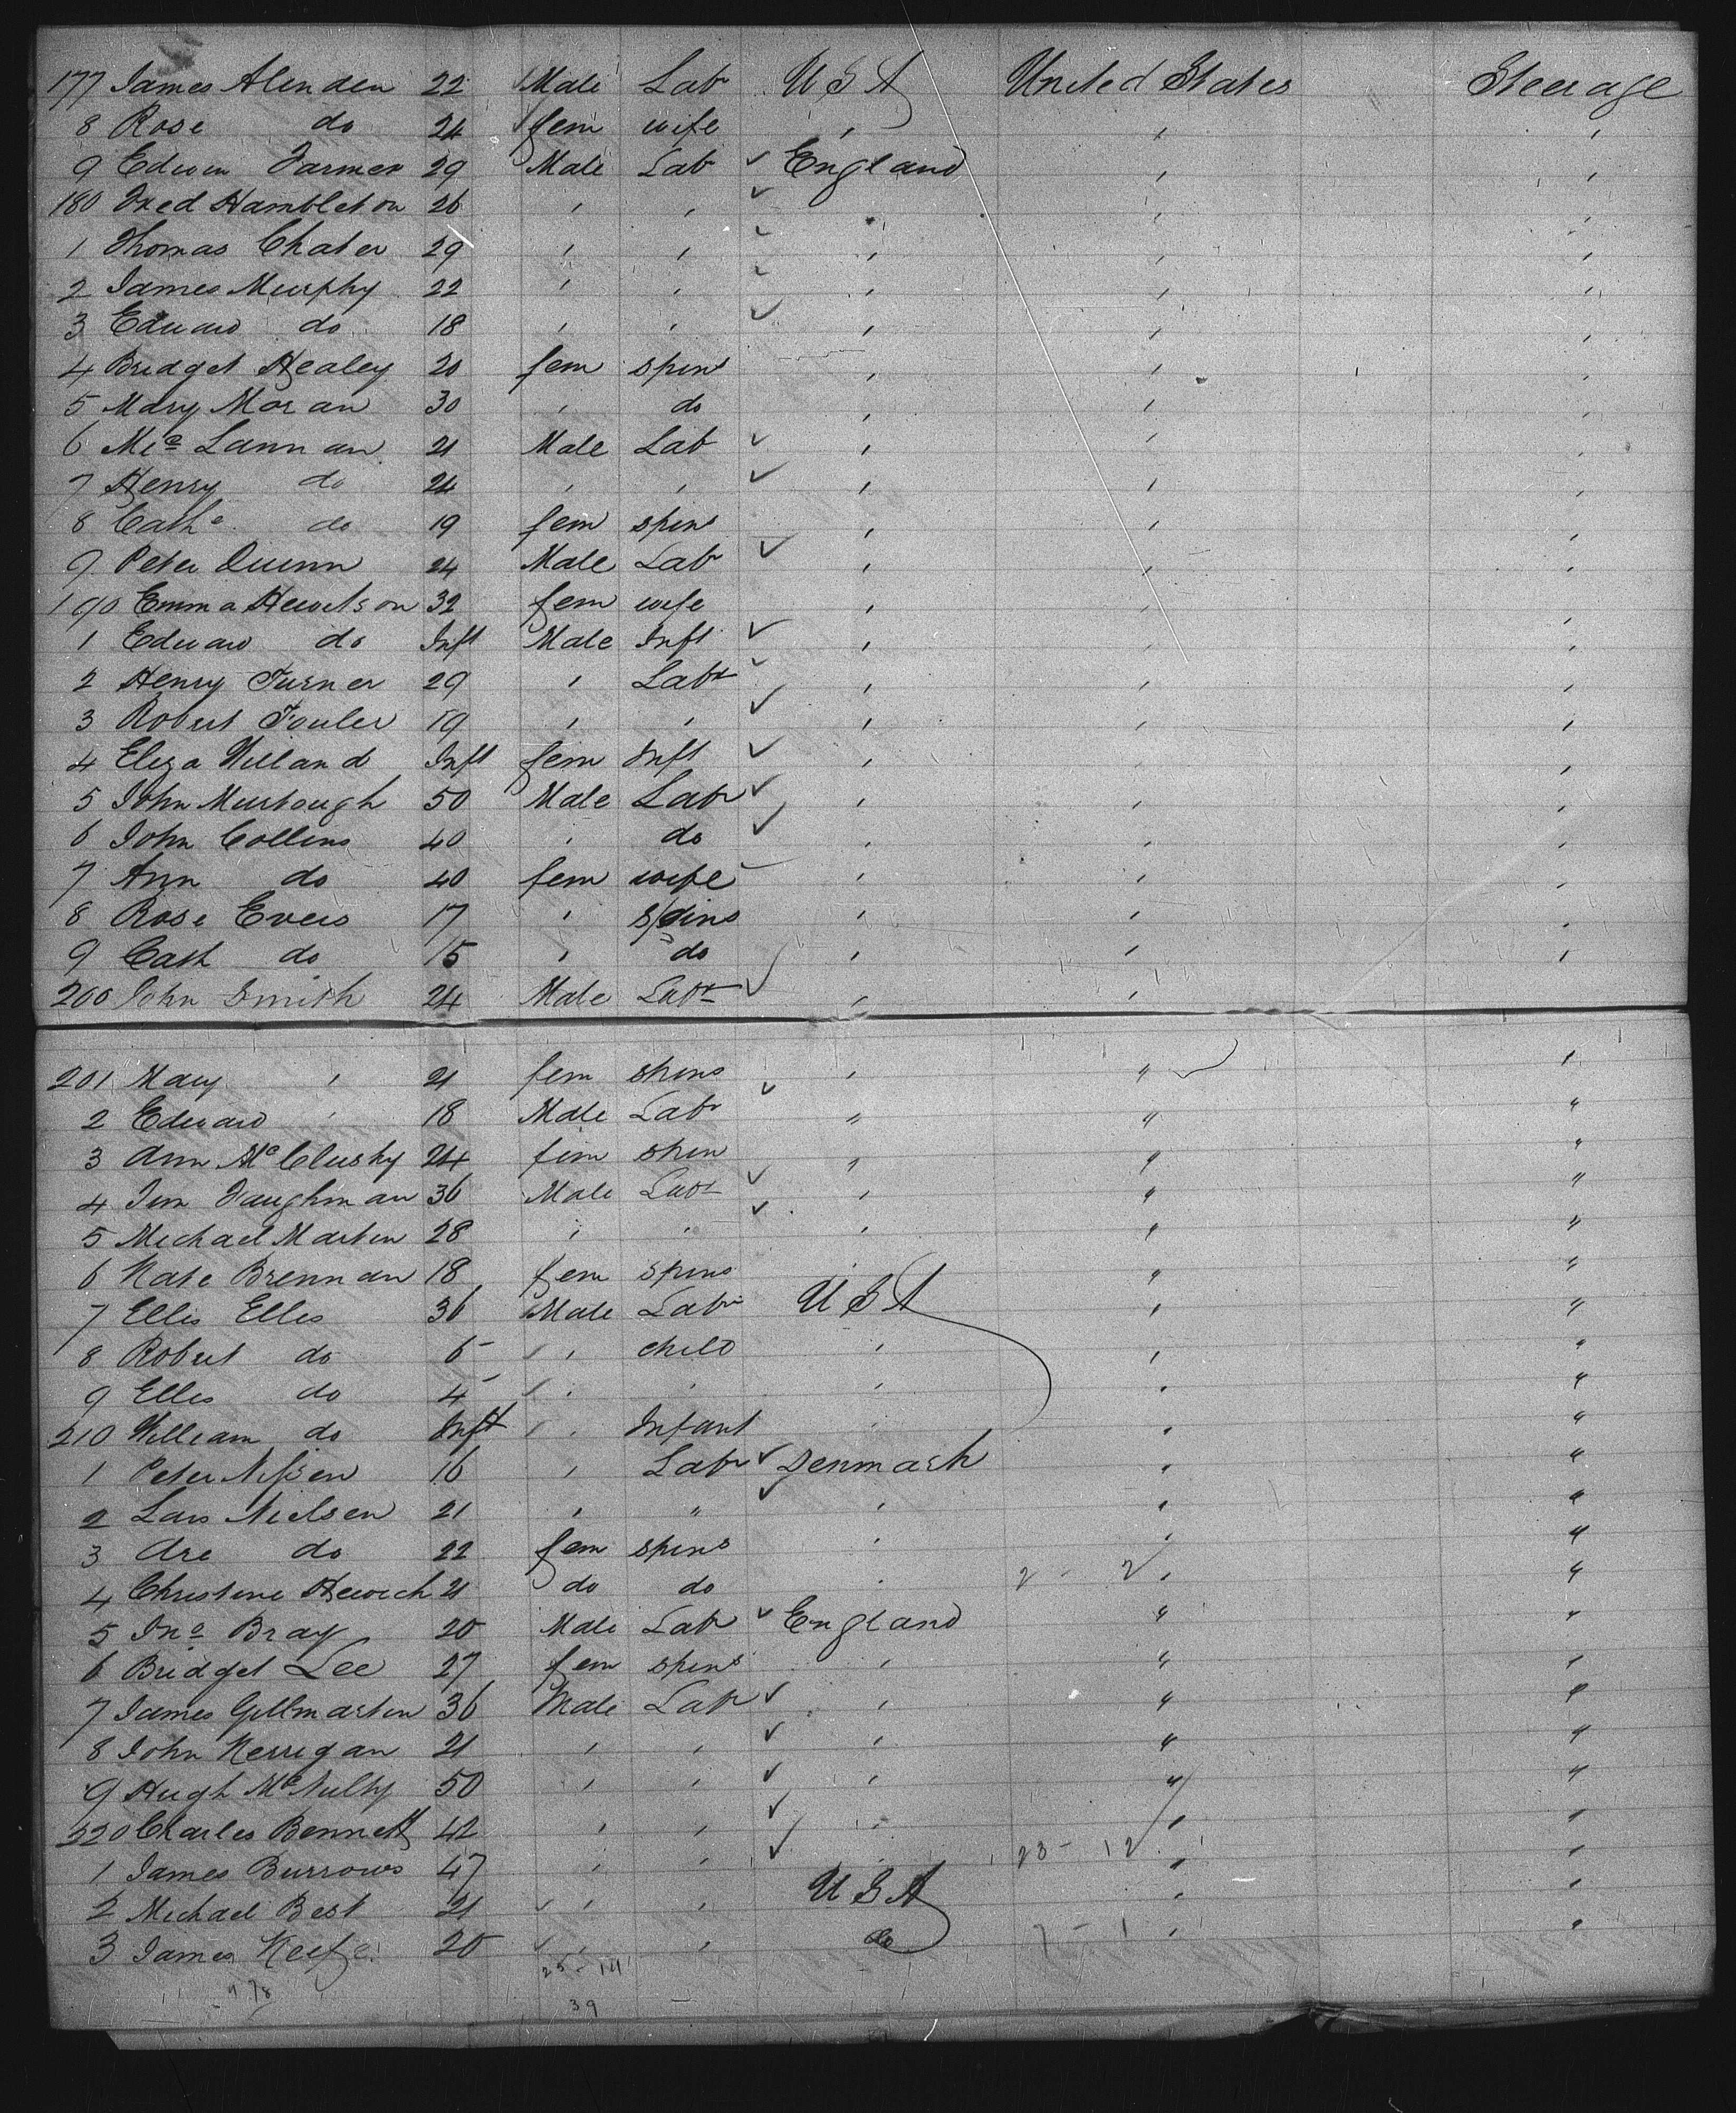 177 James Alenden 22 Male Labr U S A United States Steerage
8 Rose do 24 fem wife " " "
9 Edwin Farmer 29 Male Lab England " "
180 Fred Hambleton 26 " " " " "
1 Thomas Chater 29 " " " " "
2 James Murphy 22 " " " " "
3 Edward do 18 " " " " "
4 Bridget Healey 20 fem spins " " "
5 Mary Moran 30 " do " " "
6 Mic Lannan 21 Male Lab " " "
7 Henry do 24 " " " " "
8 Cathe do 19 fem spins " " "
9 Peter Quinn 24 Male Labr " " "
190 Emma Hewitson 32 fem wife " " "
1 Edward do Inft Male Inft " " "
2 Henry Turner 29 " Labr " " "
3 Robert Fouler 19 " " " " "
4 Eliza Willand Inft fem Inft " " "
5 John Murtough 50 Male Labr " " "
6 John Collins 40 " do " " "
7 Ann do 40 fem wife " " "
8 Rose Evers 17 " spins " " "
9 Cath do 15 " do " " "
200 John Smith 24 Male Labr " "
201 Mary " 21 fem spins " " "
2 Edward " 18 Male Labr " " "
3 Ann McClusky 24 fem spin " " "
4 Jim Faughman 36 Male Labr " " "
5 Michael Martin 28 " " " " "
6 Kate Brennan 18 fem spins " " "
7 Ellis Ellis 36 Male Labr U S A " "
8 Robert do 6 " child " " "
9 Ellis do 4 " " " " "
210 William do Inft " Infant " " "
1 Peter Nissen 16 " Labr Denmark " "
2 Lars Nielsen 21 " " " " "
3 Are do 22 fem spins " " "
4 Christine Hewich 21 do do " 2 - 2 " "
5 Jno Bray 20 Male Labr England " "
6 Bridget Lee 27 fem spins " " "
7 James Gillmartin 36 Male Labr " " "
8 John Kerrigan 21 " " " " "
9 Hugh McNulty 50 " " " " "
220 Charles Bennett 42 " " " " "
1 James Burrows 47 " " " 23 - 12 " "
2 Michael Best 21 " " U S A " "
3 James Keefe 20 " " do 7 - 1 " "
25 - 14
39